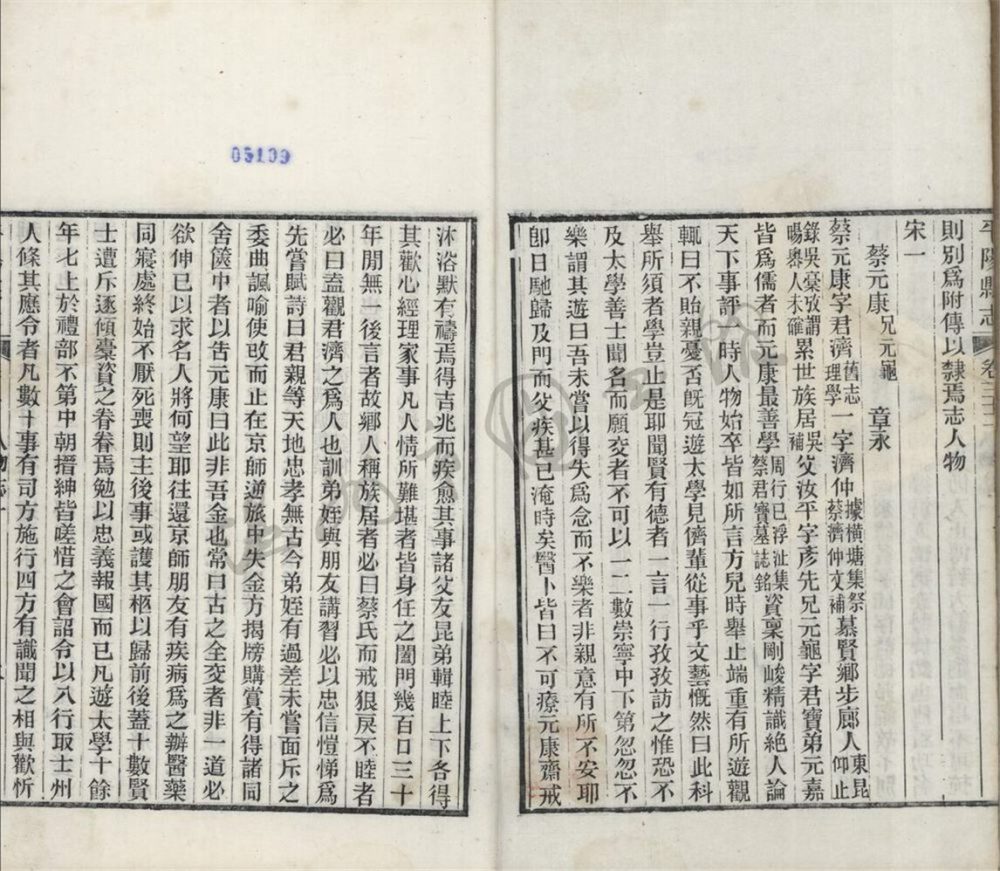 平陽縣志 卷三十二
則別爲附傳以隸焉志人物
宋一
蔡元康 兄元龜 章永
蔡元康字君濟舊志理學一字濟仲據橫塘集祭蔡濟仲文補慕賢鄉步廊人東昆仰止
錄吳稾攷謂暘嶴人未確累世族居吳補父汝平字彥先兄元龜字君寶弟元嘉
皆爲儒者而元康最善學周行已浮沚集蔡君寶墓誌銘資稟剛峻精識絕人論
天下事評一時人物始卒皆如所言方兒時舉止端重有所遊觀
輒曰不貽親憂否旣冠遊太學見儕輩從事乎文藝慨然曰此科
舉所須者學豈止是耶聞賢有德者一言一行孜孜訪之惟恐不
及太學善士聞名而願交者不可以一二數崇寧中下第忽忽不
樂謂其遊曰吾未嘗以得失爲念而不樂者非親意有所不安耶
卽日馳歸及門而父疾甚已淹時矣醫卜皆曰不可療元康齋戒
沐浴默有禱焉得吉兆而疾愈其事諸父友昆弟輯睦上下各得
其歡心經理家事凡人情所難堪者皆身任之闔門幾百口三十
年閒無一後言者故鄉人稱族居者必曰蔡氏而戒狠戾不睦者
必曰盍觀君濟之爲人也訓弟姪與朋友講習必以忠信愷悌爲
先嘗賦詩曰君親等天地忠孝無古今弟姪有過差未嘗面斥之
委曲諷喻使改而止在京師逆旅中失金方揭牓購賞有得諸同
舍篋中者以告元康曰此非吾金也常曰古之全交者非一道必
欲伸已以求名人將何望耶往還京師朋友有疾病爲之辦醫藥
同寢處終始不厭死喪則主後事或護其柩以歸前後蓋十數賢
士遭斥逐傾橐資之眷眷焉勉以忠義報國而已凡遊太學十餘
年七上於禮部不第中朝搢紳皆嗟惜之會詔令以八行取士州
人條其應令者凡數十事有司方施行四方有識聞之相與歡忻
05199